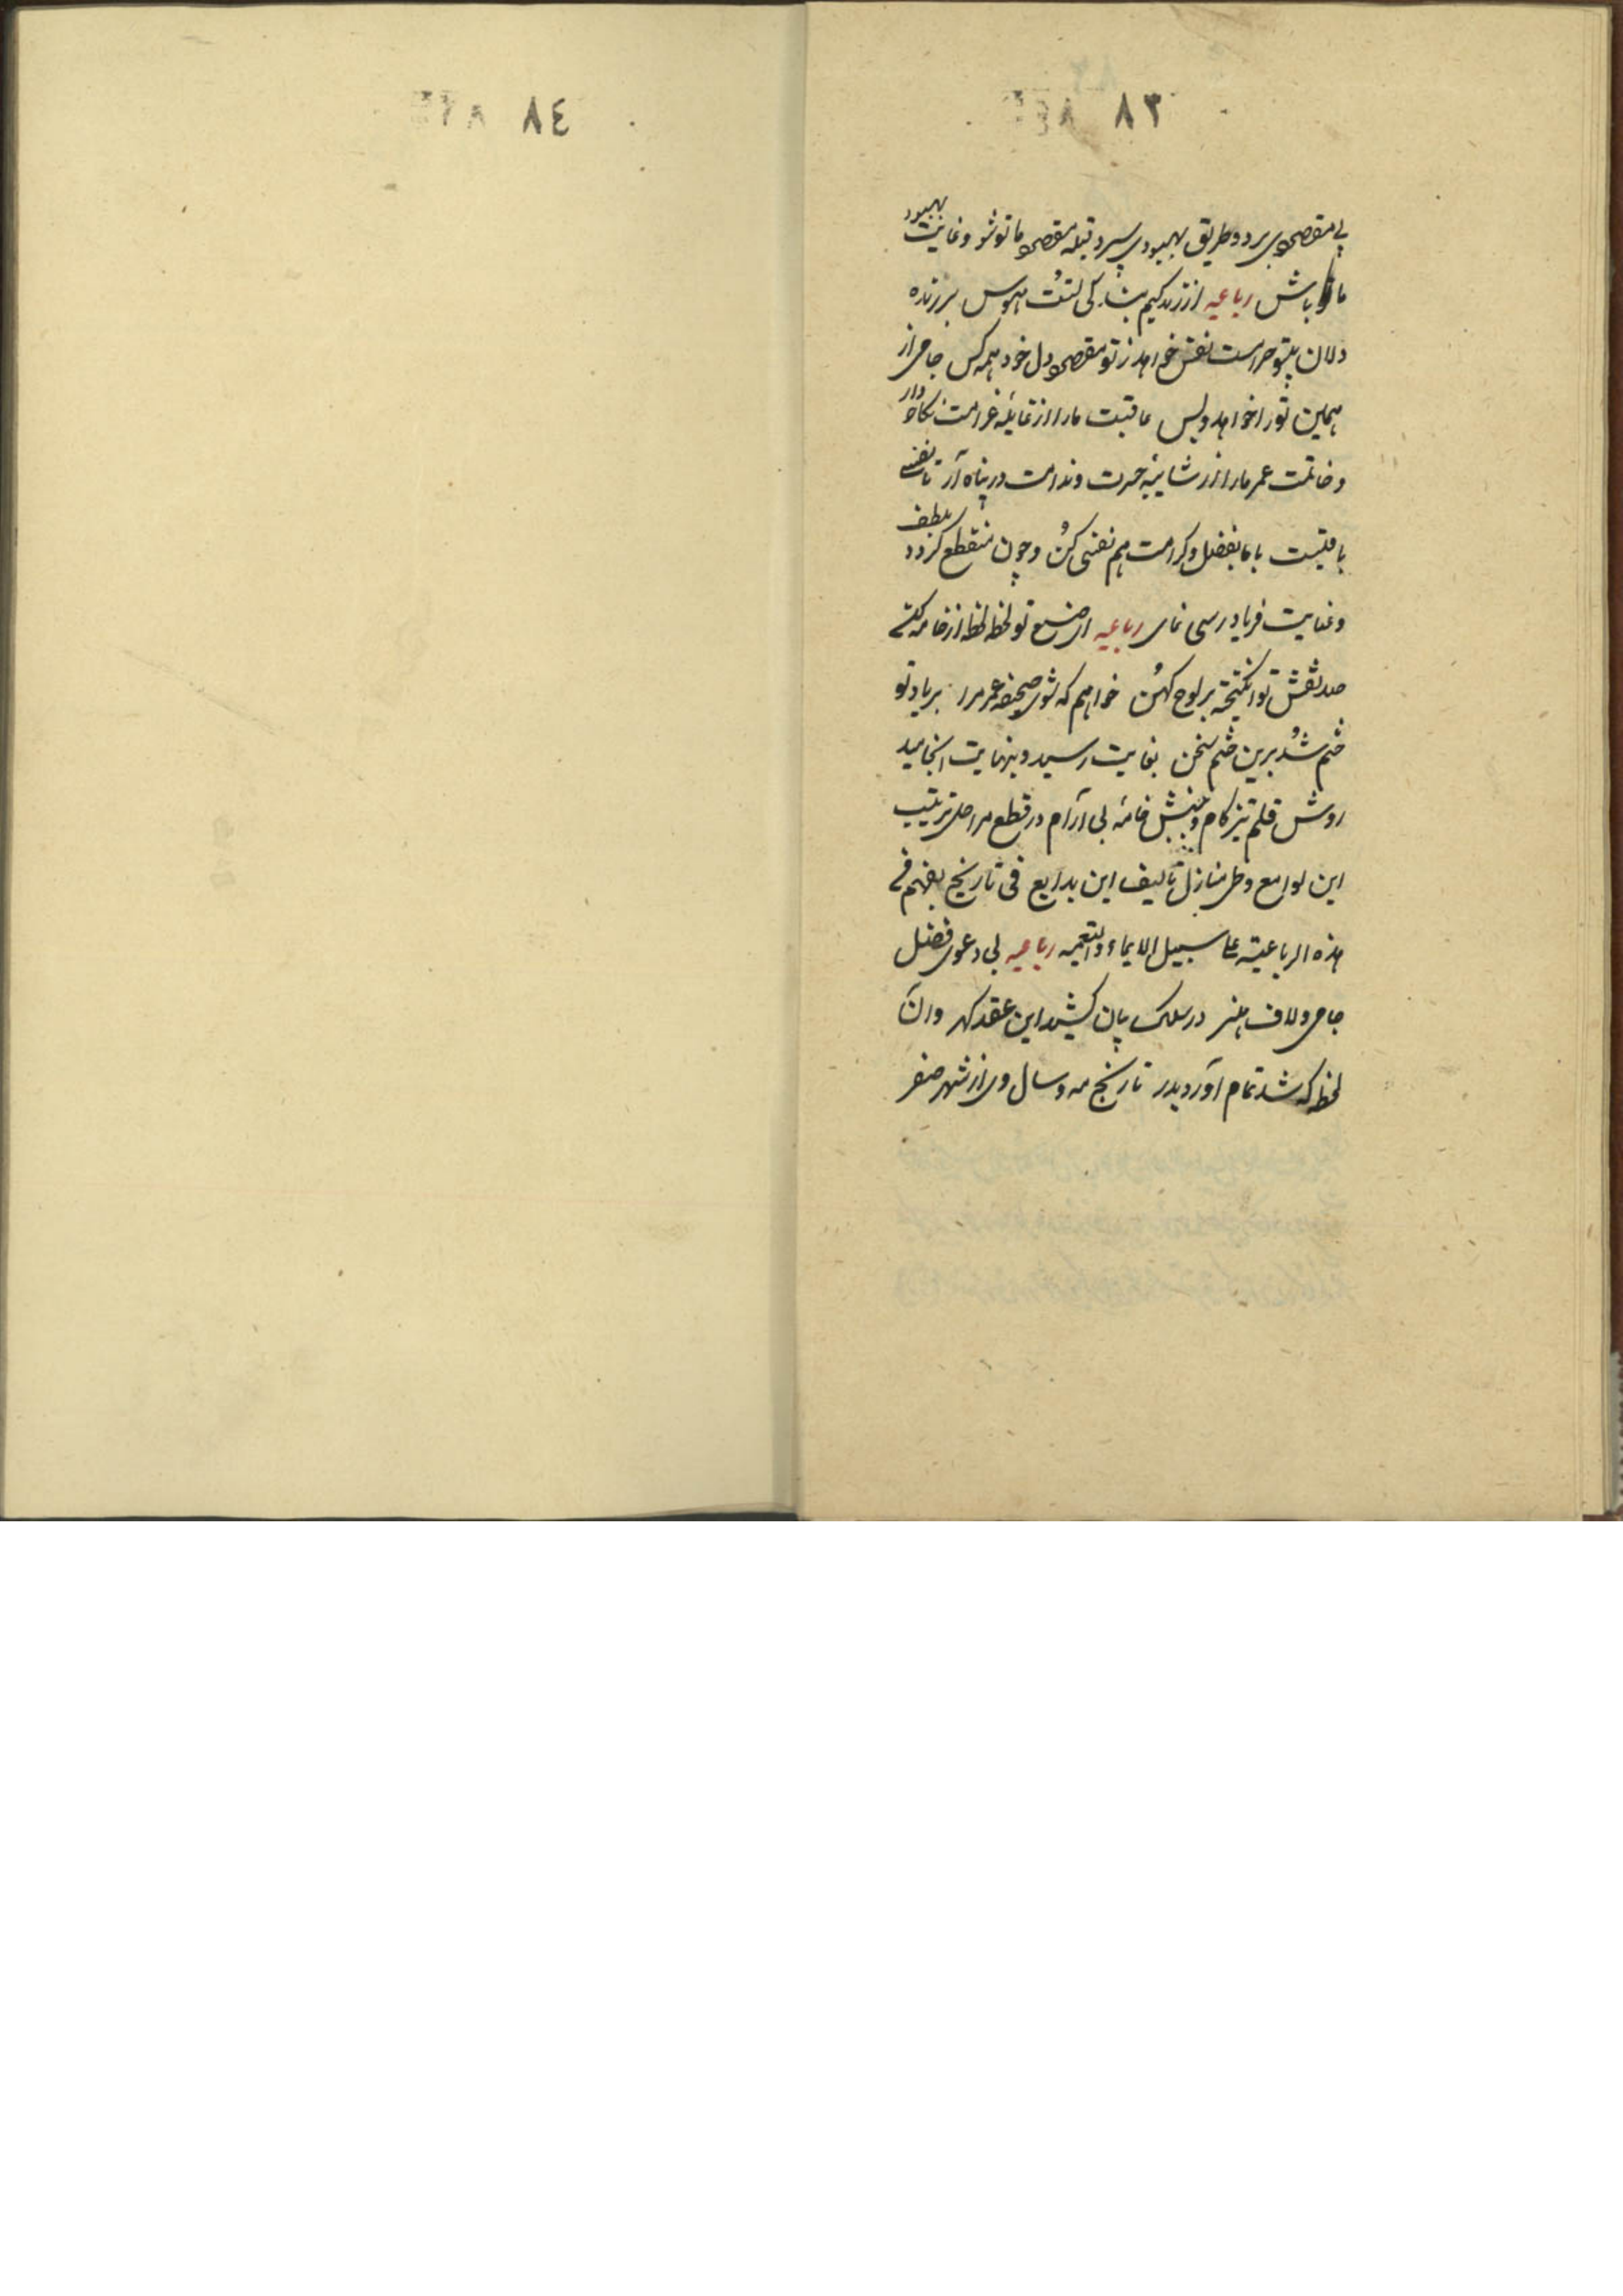 ٨٣
پی مقصودی برد و طریق بهبودی سپرد قبله مقصود ما تو شو و غایت بهبود
ما تو باش رباعیه از زندگیم بندگی تست هوس بر زنده
دلان بیتو حرامست نفس خواهد ز تو مقصود دل خود همه کس جامی از
همین تو را خواهد و بس عاقبت ما را از غایله غرامت نگاه دار
و خاتمت عمر ما را از شایبه حسرت و ندامت در پناه آر تا نفسی
باقیست با ما بفضل و کرامت هم نفسی کن و چون منقطع گردد بلطف
و عنایت فریادرسی نمای رباعیه ای صنع تو لحظه لحظه از خامه کن
صد نقش تو انگیخته بر لوح کهن خواهم که شوی صحیفه عمر مرا بر یاد تو
ختم شد برین ختم سخن بغایت رسید و بنهایت انجامید
روش قلم تیزکام و جنبش خامه بی آرام در قطع مراحل ترتیب
این لوامع و طی منازل تالیف این بدایع فی تاریخ یفهم من
هذه الرباعیة علی سبیل الایماء والتعمیه رباعیه بی دعوی فضل
جامی و لاف هنر در سلک بیان کشید این عقد گهر وان
لحظه که شد تمام آورد بدر تاریخ مه و سال وی از شهر صفر
٨٤